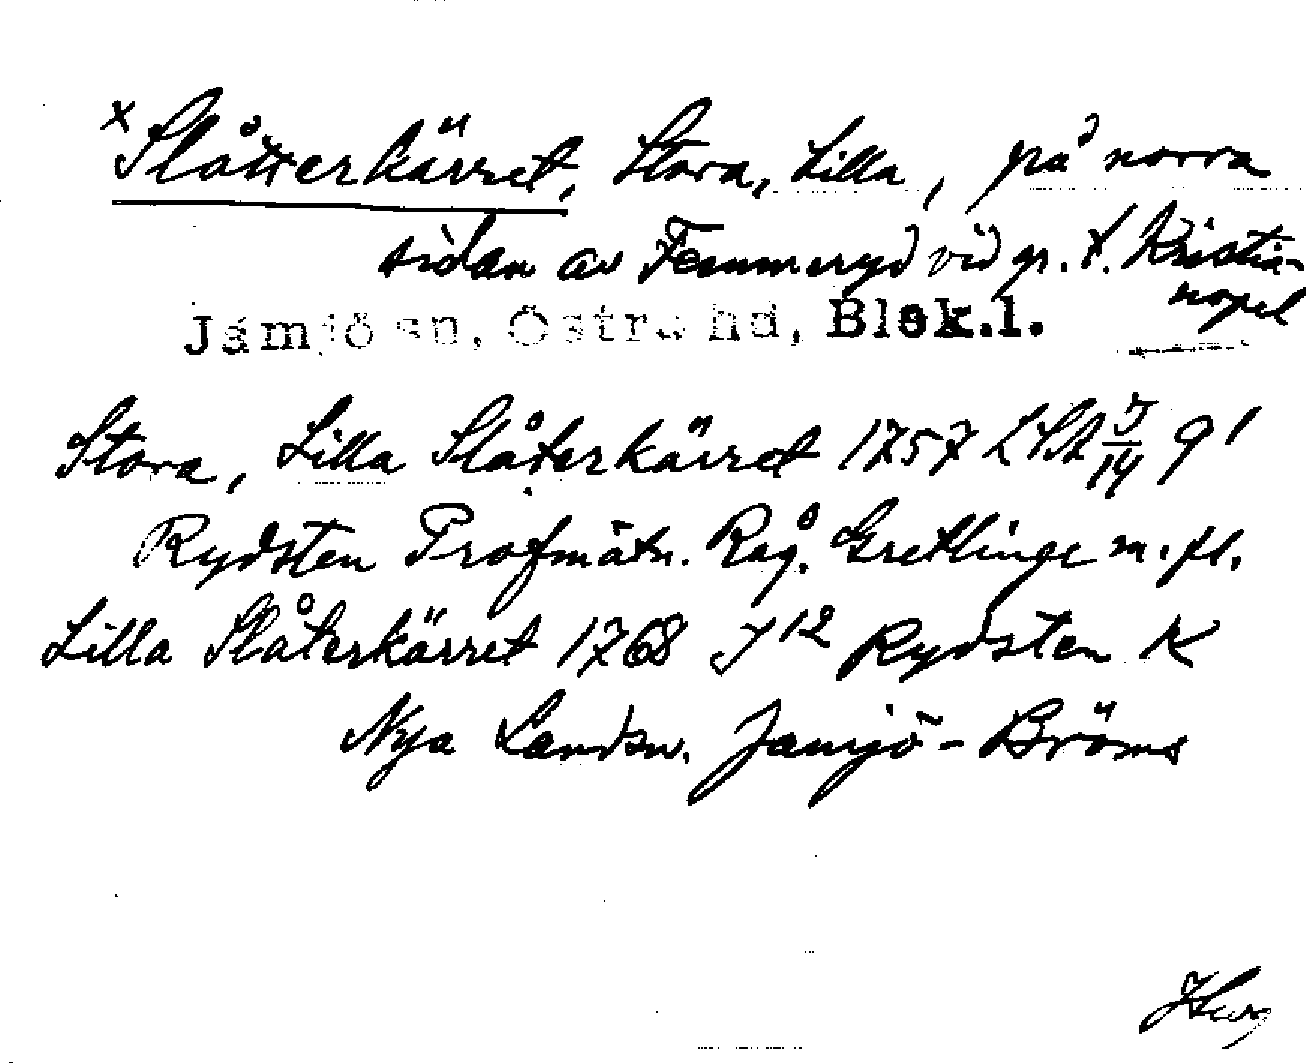 x Slåtterkärret, Stora, Lilla, på norra
sidan av Femmeryd vid gr. t. Kristia-
nopel
Jämjö sn, Östra hd, Blek.l.
Stora, Lilla Slåterkärret 1757 LSA J/14 9¹
Rydsten Profmätn. Rag. Gretlinge m.fl.
Lilla Slåterkärret 1768 J¹² Rydsten K
Nya Landsv. Jämjö - Bröms